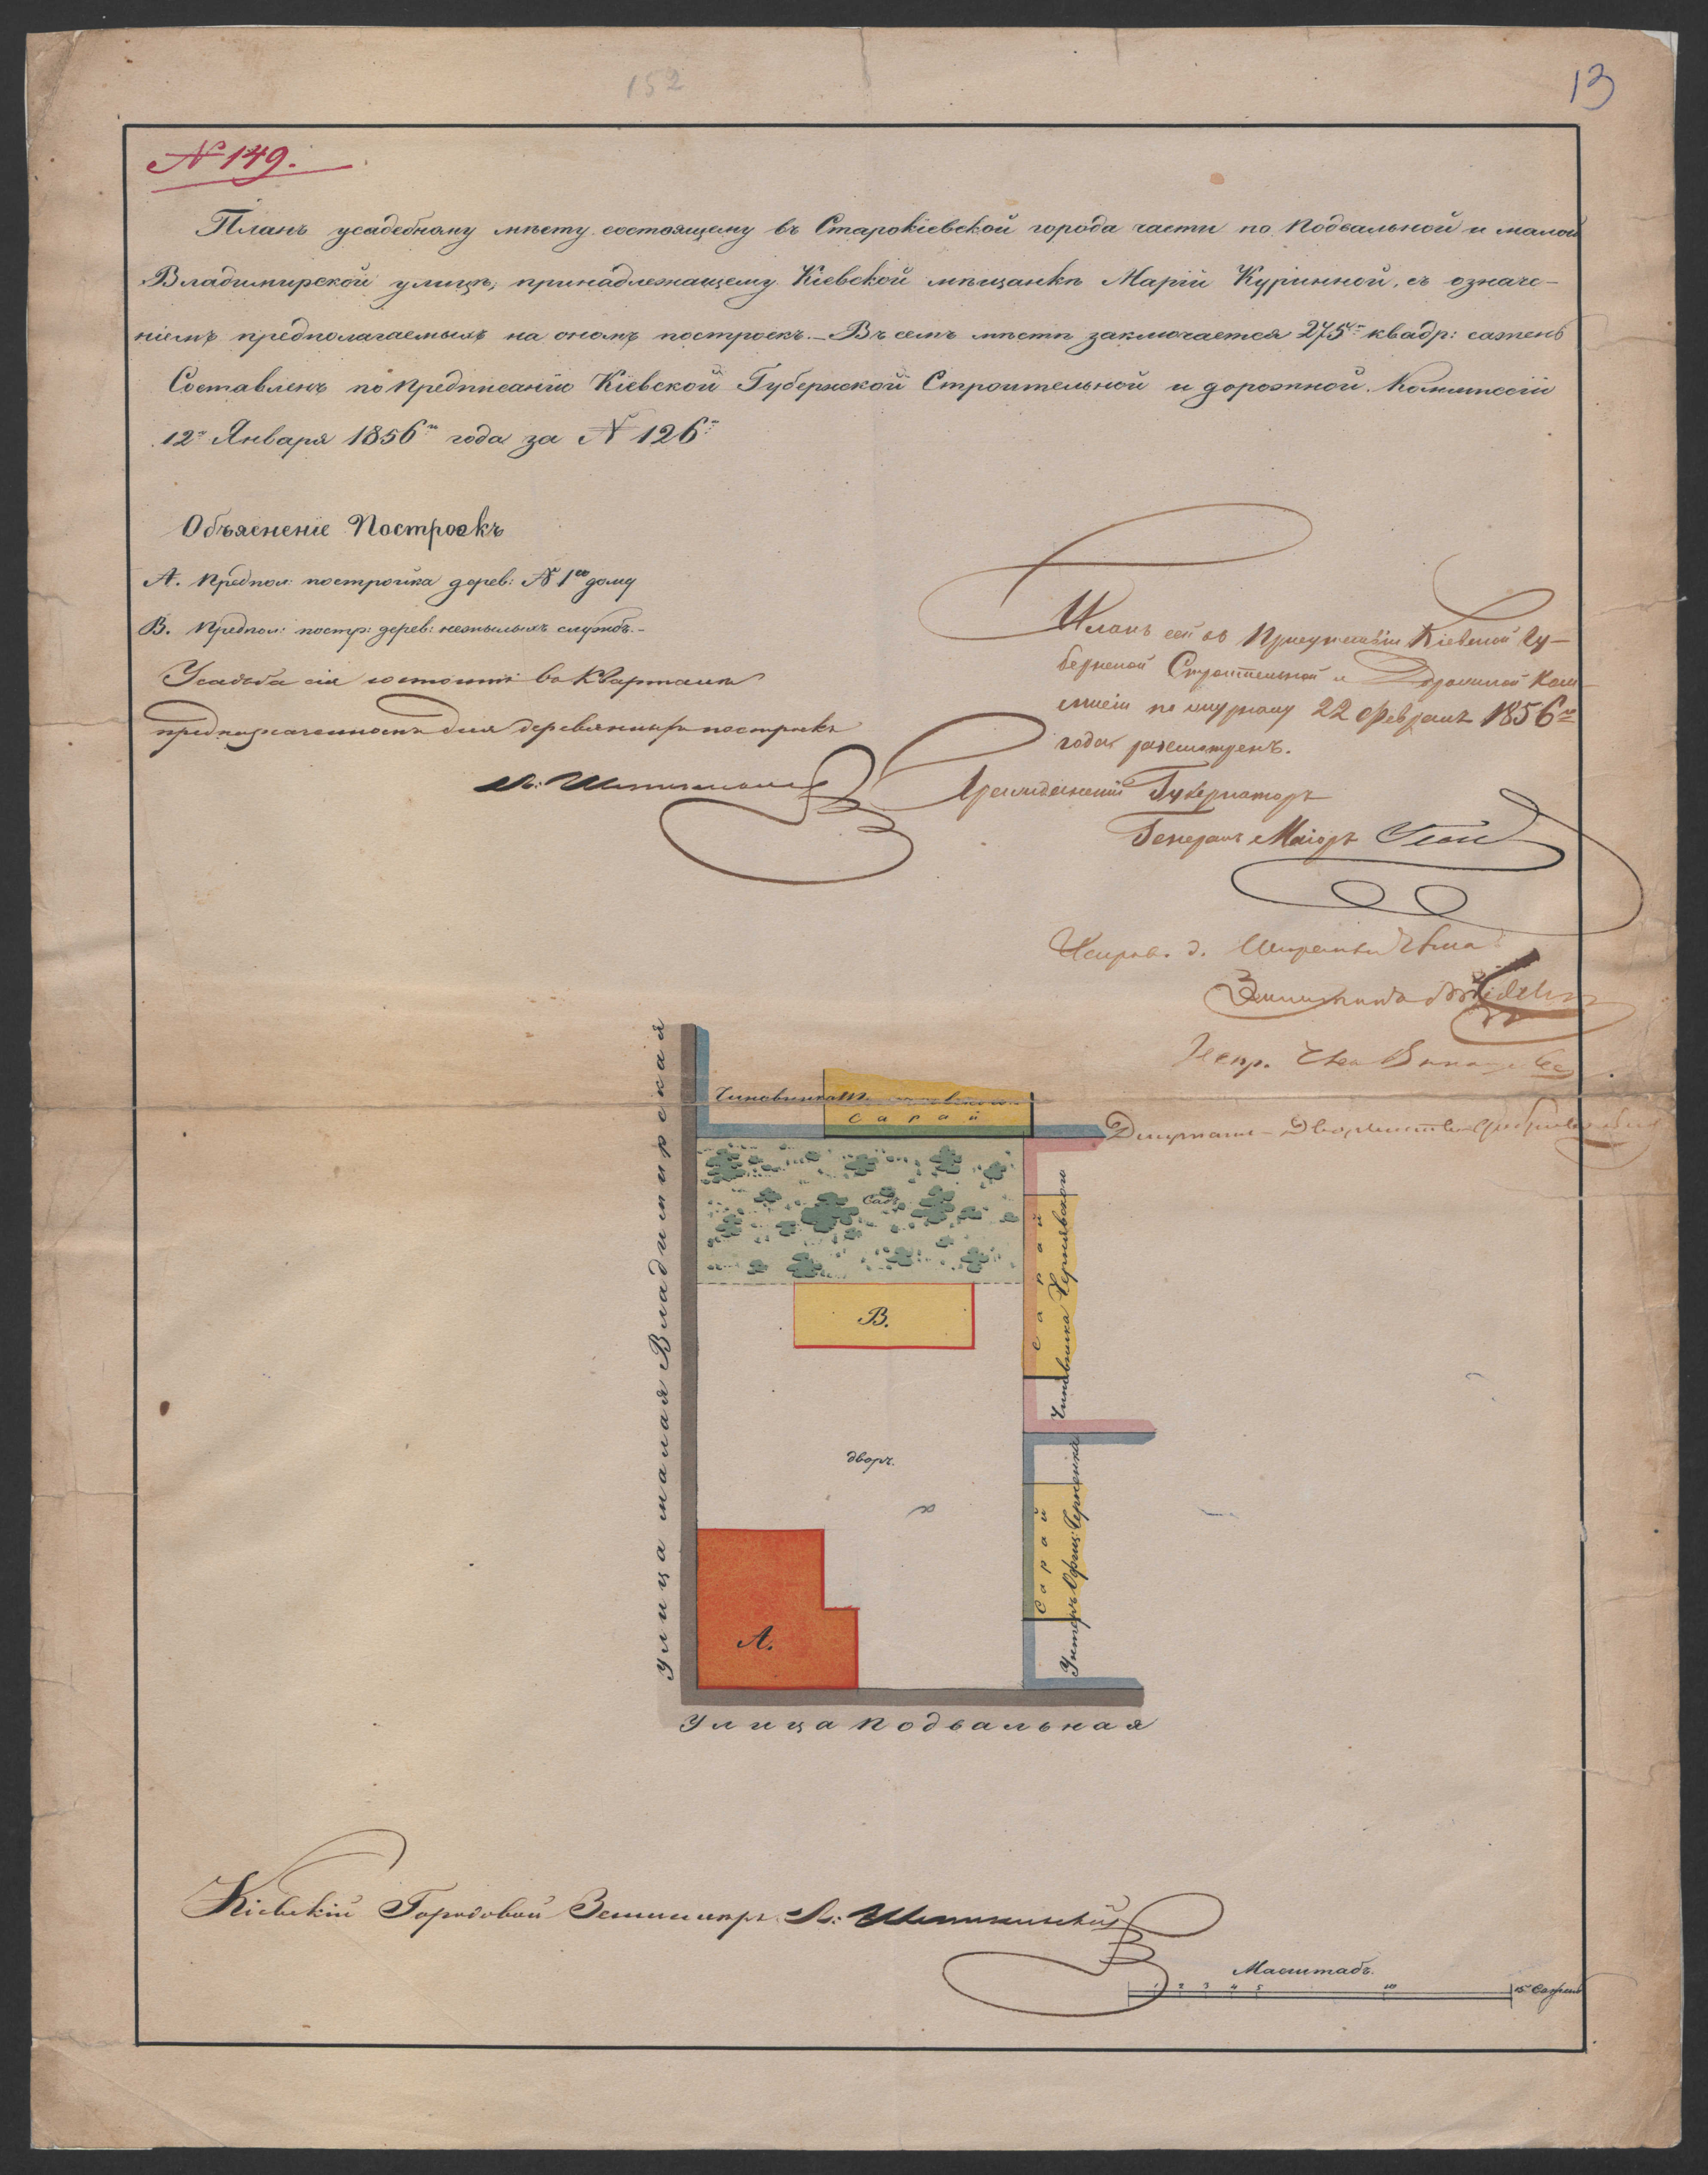 152
13
№ 149.
Планъ усадебному мѣсту состоящему въ Старокіевской города части по Подвальной и малой
Владимирской улицѣ, принадлежащему Кіевской мѣщанкѣ Маріи Куринной, съ означе-
ніемъ предполагаемыхъ на ономъ построекъ.- Въ семъ мѣстѣ заключается 275ть квадр: сажень
Составленъ по предписанію Кіевской Губернской Строительной и дорожной Коммиссіи
12го Января 1856го года за № 126мъ
Объясненіе Построекъ
А. Предпол: постройка дерев: № 1го дому
В. Предпол: постр: дерев: нежилыхъ службъ.-
Усадьба сія состоитъ въ Кварталѣ
предназначенномъ для деревянныхъ построекъ
Планъ сей въ Присутствіи Кіевской Гу-
бернской Строительной и Дорожной Ком-
мисіи по журналу 22 Февраля 1856го
года разсмотренъ.
Гражданскій Губернаторъ
Генералъ Маіоръ
Исправ. д.
Испр.
Депутатъ Дворянства
Чиновника
Сарай
Садъ
Сарай
Чиновника Чернявской
В.
дворъ.
Сарай
Унтеръ Офиц: Черненка
А.
Улица малая Владимирская
Улица Подвальная
Кіевскій Городовой Землемѣръ
Масштабъ.
1 2 3 4 5 10 15 Сажень